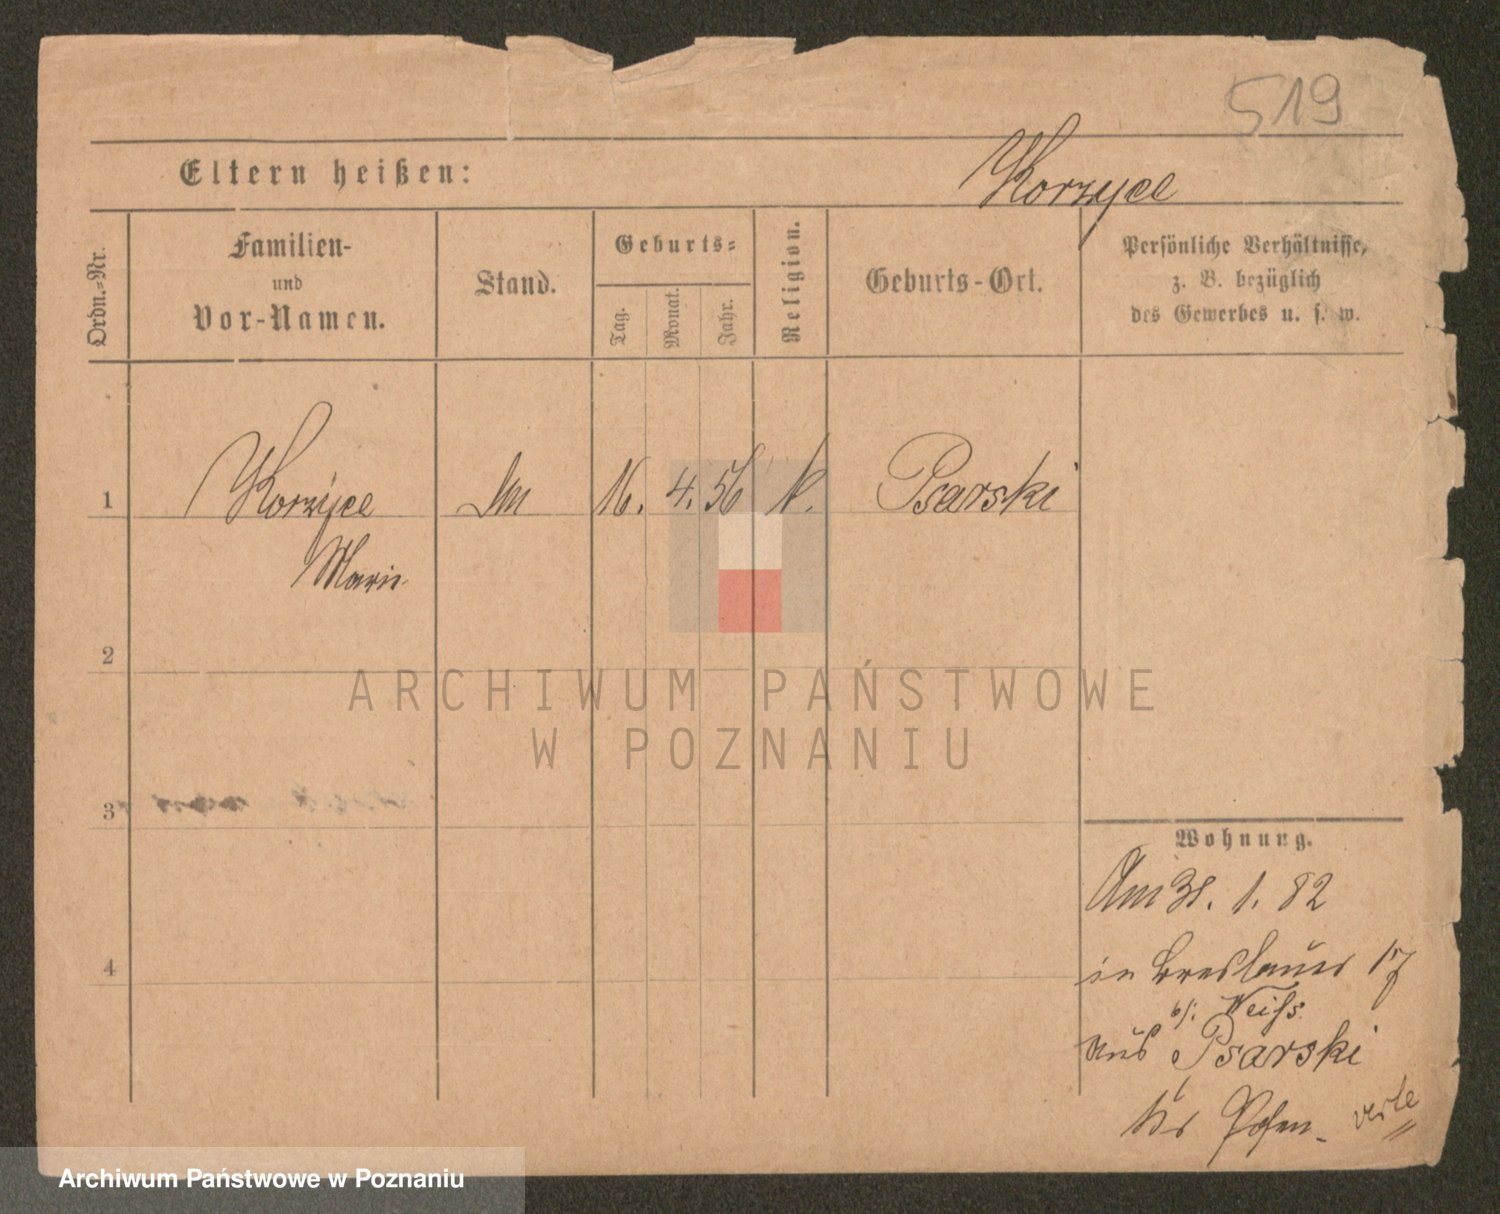 519
Eltern heißen:
Korzyce
Ordn.-Nr.
Familien-
und
Vor-Namen.
Stand.
Geburts-
Tag.
Monat.
Jahr.
Religion.
Geburts-Ort.
Persönliche Verhältnisse,
z. B. bezüglich
des Gewerbes u. s. w.
1
Korzyce
16. 4. 56 k.
Psarski
Marie
2
ARCHIWUM PAŃSTWOWE
W POZNANIU
3
Wohnung.
Am 31. 1. 82
4
in Breslauer 17
b/: Weiss.
aus Psarski
Kr Posen
Archiwum Państwowe w Poznaniu